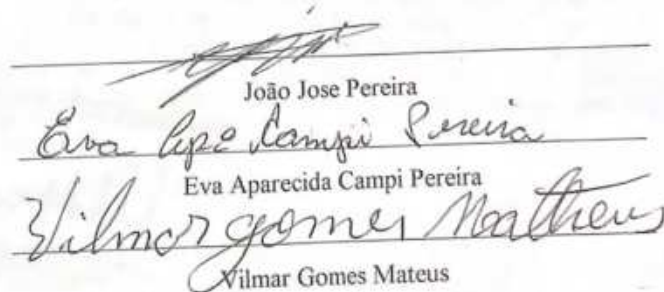 João Jose Pereira
Eva Apª Campi Pereira
Eva Aparecida Campi Pereira
Vilmar gomes Matheus
Vilmar Gomes Mateus